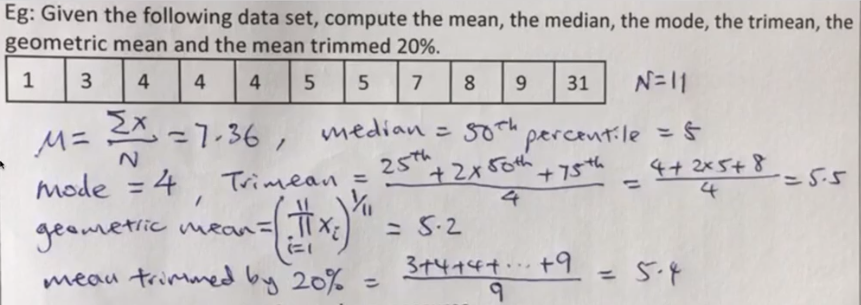 Eg: Given the following data set, compute the mean, the median, the mode, the trimean, the
geometric mean and the mean trimmed 20%.
1 3 4 4 4 5 5 7 8 9 31 N=11
M = Σx/N = 7.36, median = 50th percentile = 5
mode = 4, Trimean = (25th + 2x50th + 75th)/4 = (4+2x5+8)/4 = 5.5
geometric mean = (∏ i=1 11 xi)^1/11 = 5.2
mean trimmed by 20% = (3+4+4+...+9)/9 = 5.4